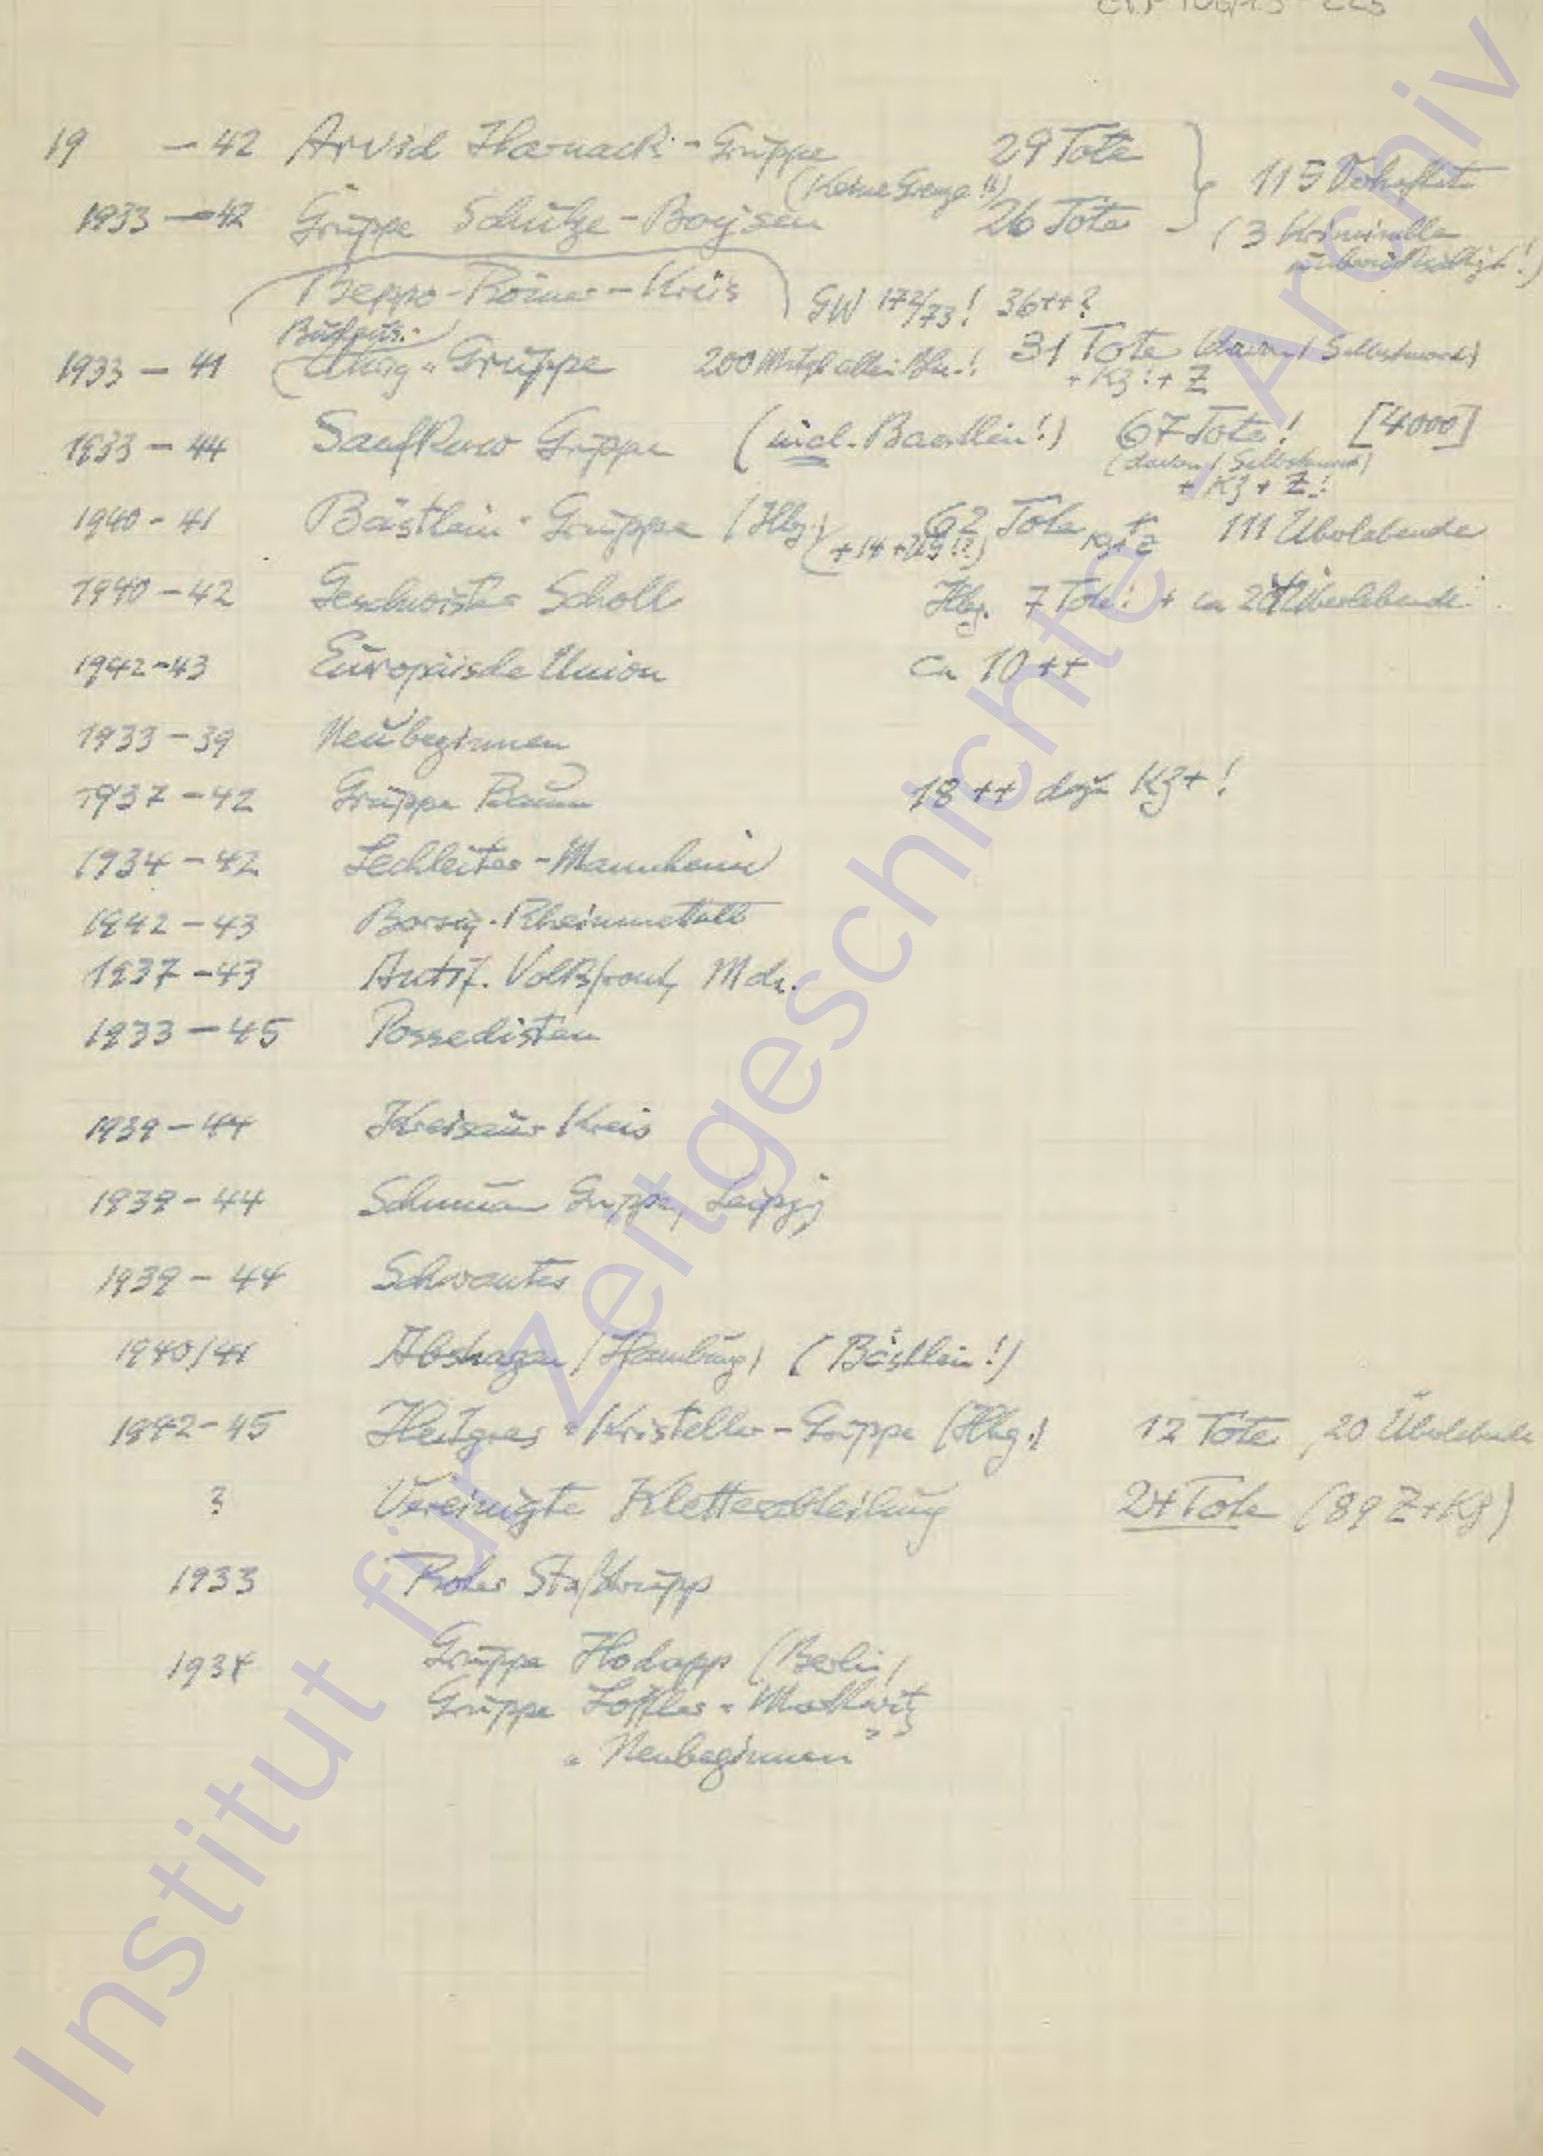 ED 106/ -
19 - 42 Arvid Harnack-Gruppe 29 Tote
(Keine Grenze!!) 115 Verhaftete
1933 - 42 Gruppe Schulze-Boysen 26 Tote
(3 Kriminelle
Beppo-Römer-Kreis GW 172/73! 36++?
1933 - 41 Uhrig-Gruppe 200 Mitgl. allein Bln.! 31 Tote (davon 1 Selbstmord)
+ Kz! + Z
1933 - 44 Saefkow Gruppe (incl. Baestlein!) 67 Tote! [4000]
(davon 1 Selbstmord)
+ Kz + Z!
1940 - 41 Bästlein-Gruppe (Hbg.) 62 Tote + Kz + Z 111 Überlebende
1940 - 42 Geschwister Scholl Hbg. 7 Tote! + ca Überlebende
1942-43 Europäische Union Ca 10 ++
1933 - 39 Neubeginnen
1937 - 42 Gruppe Baum 18 ++ dazu Kz+!
1934 - 42 Lechleiter-Mannheim
1942 - 43 Borsig-Rheinmetall
1937 - 43 Antif. Volksfront, Mch.
1933 - 45 Possedisten
1939 - 44 Kreisauer Kreis
1939 - 44 Schumann Gruppe, Leipzig
1939 - 44 Schwantes
1940/41 Abshagen (Hamburg) (Bästlein!)
1942-45 Heitgres-Kristeller-Gruppe (Hbg.) 12 Tote, 20 Überlebende
? Vereinigte Kletterabteilung 24 Tote (89 Z + Kz)
1933 Roter Stoßtrupp
1934 Gruppe Hodapp (Berlin)
Gruppe Löffler -
"Neubeginnen"
Institut für Zeitgeschichte - Archiv